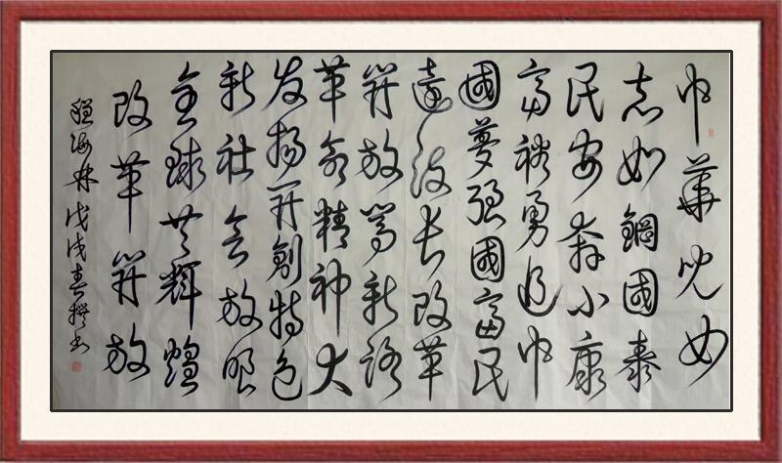 中華兒女
志如鋼國泰
民安奔小康
富裕勇追中
國夢強國富民
长改革
開放新路
革命精神大
发扬開創特色
新社會放眼
全球共輝煌
改革開放
程海林 戊戌春撰书